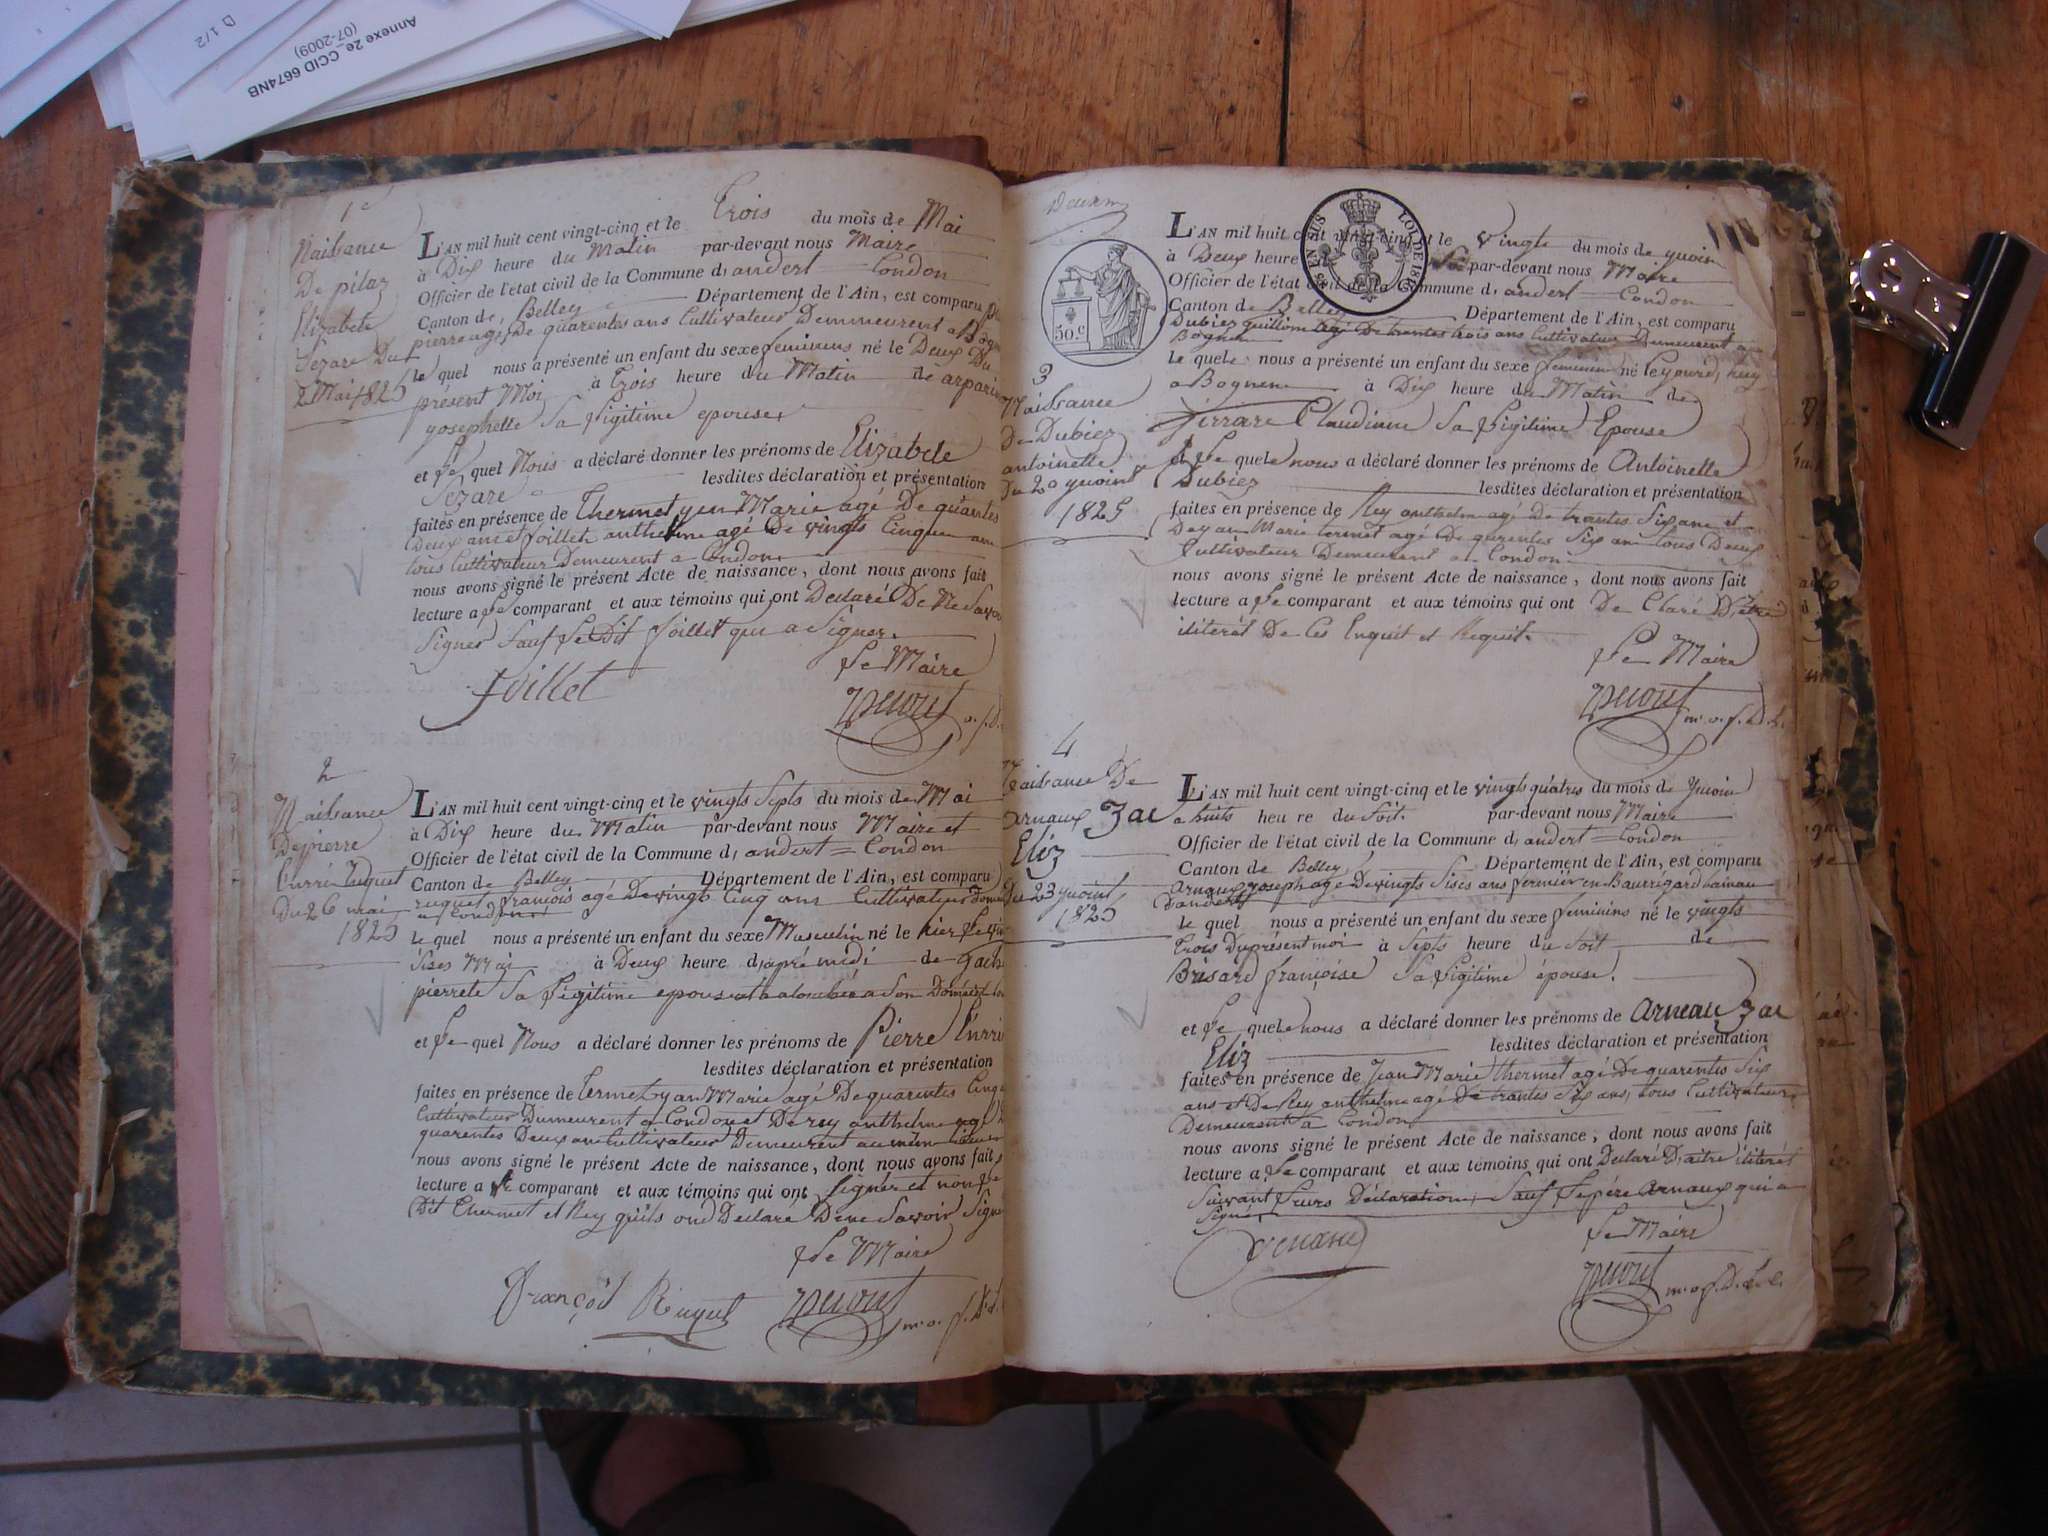 D 1/2
Annexe 2e_CCID 6674NB
(07-2009)
1e
Naissance
De pilaz
Elizabete
Sezare Du
2 Mai 1825
L'AN mil huit cent vingt-cinq et le Trois du mois de Mai
à Dix heure du Matin par-devant nous Maire
Officier de l'état civil de la Commune d, andert = Condon
Canton de, Belley Département de l'Ain, est comparu
pierre agé De quarentes ans Cultivateur Demmeurent a
le quel nous a présenté un enfant du sexe feminins né le Deux Du
présent Moi à Trois heure du Matin de
yosephette Sa Ligitime epouse
et Le quel Nous a déclaré donner les prénoms de Elizabete
Sezare lesdites déclaration et présentation
faites en présence de Thermet yen Marie agé De quarentes
Deux ans et Joillet anthelme agé De vingts Cinque ans
tous Cultivateur Demeurent a Condon
nous avons signé le présent Acte de naissance, dont nous avons fait
lecture a Le comparant et aux témoins qui ont Declaré De Ne Savoir
Signer Sauf Le Dit Joillet qui a Signer.
Le Maire
Joillet
2
Naissance
De pierre
Enrri Ruquet
Du 26 mai
1825
L'AN mil huit cent vingt-cinq et le vingts Septs du mois de Mai
à Dix heure du Matin par-devant nous Maire et
Officier de l'état civil de la Commune d, andert = Condon
Canton de Belley Département de l'Ain, est comparu
ruquet francois agé De vingt Cinq ans Cultivateur
a Condon
le quel nous a présenté un enfant du sexe Masculin né le hier Le
Sises Mai à Deux heure d, apré midi de
pierrete Sa Ligitime epouse
et Le quel Nous a déclaré donner les prénoms de Pierre Enrri
lesdites déclaration et présentation
faites en présence de Termet yan Marie agé De quarentes Cinq
Cultivateur Dumeurent a Condon et De rey anthelme agé
quarentes Deux an Cultivateur Demeurent au mem lieu
nous avons signé le présent Acte de naissance, dont nous avons fait
lecture a Le comparant et aux témoins qui ont Signer et non Le
Dit Thermet et Rey qu'ils ond Declaré De ne Savoir Signé
Le Maire
François Ruquet
Deuxem
50.c
LOI DE 1816
3
Naissance
De Dubiez
antoinette
Du 20 yuoint
1825
L'AN mil huit cent vingt-cinq et le vingts du mois de yuoin
à Deux heure par-devant nous Maire
Officier de l'état civil de la Commune d, andert = Condon
Canton de Belley Département de l'Ain, est comparu
Dubiez guillome agé De trantes trois ans Cultivateur Demeurent a
Bognen
le quel nous a présenté un enfant du sexe feminin né le
a Bognen à Dix heure du Matin de
Claudinne Sa Ligitime Epouse
et Le quel nous a déclaré donner les prénoms de Antoinette
Dubiez lesdites déclaration et présentation
faites en présence de Rey anthelm agé De trantes Six ans et
De yan Marie termet agé de qurentes Six an tous Deux
Cultivateur Demeurent a Condon
nous avons signé le présent Acte de naissance, dont nous avons fait
lecture a Le comparant et aux témoins qui ont De Claré D'etre
iliterét De Ces Enquit et Requit.
Le Maire
4
Naissance De
arnaux Zac
Eliz
Du 23 yuoint
1825
L'AN mil huit cent vingt-cinq et le vingts quatres du mois de yuoin
a huits heure du Soit. par-devant nous Maire
Officier de l'état civil de la Commune d, andert = Condon
Canton de Belley Département de l'Ain, est comparu
Arnaux yoseph agé De vingts Sises ans fermier en Baurregard hamau
D'andert
le quel nous a présenté un enfant du sexe feminins né le vingts
Trois Du présent moi à Septs heure du Soit de
Brisard françoise Sa Ligitime épouse.
et Le quel nous a déclaré donner les prénoms de Arneau Zac
Eliz lesdites déclaration et présentation
faites en présence de Jean Marie thermet agé De quarentes Six
ans et De Rey anthelme agé De trantes Six ans, tous Cultivateur
Demeurent a Condon
nous avons signé le présent Acte de naissance, dont nous avons fait
lecture a Le comparant et aux témoins qui ont Declaré D, aitre iliterét
Suivant Leurs Déclaration, Sauf Le pére Arnaux qui a
Signé.
Le Maire